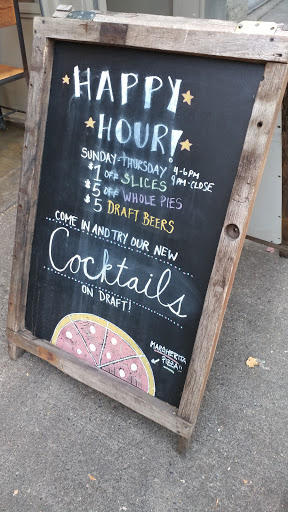 HAPPY
HOUR!
SUNDAY-THURSDAY 4-6PM
$1 OFF SLICES 9PM-CLOSE
$5 OFF WHOLE PIES
$5 DRAFT BEERS
COME IN AND TRY OUR NEW
Cocktails
ON DRAFT!
MARGHERITA
PIZZA!!